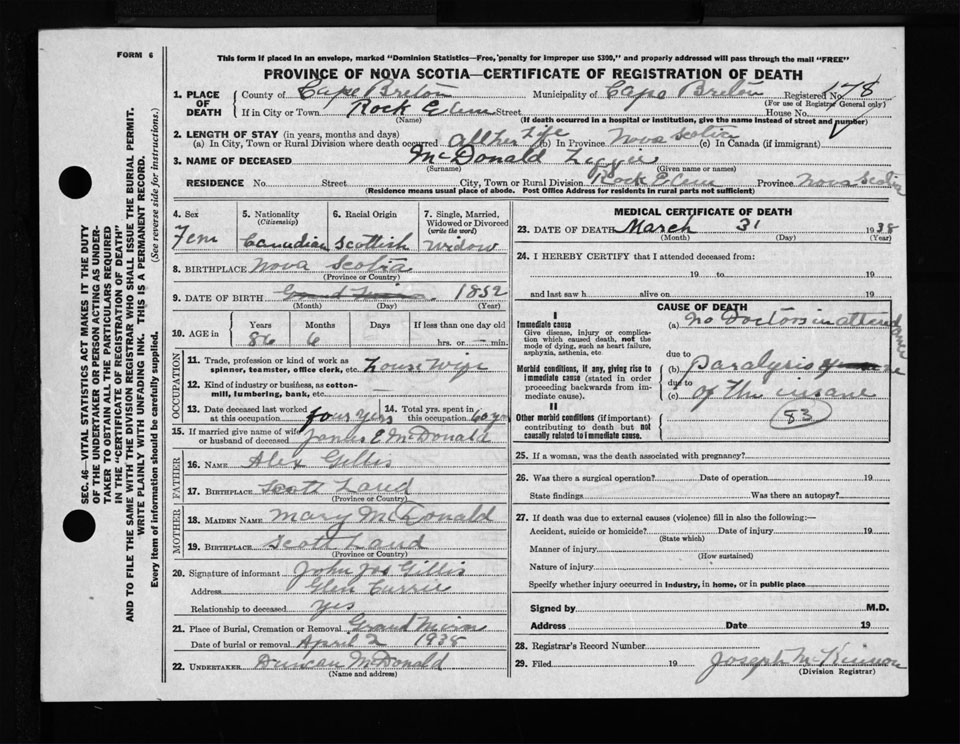 FORM 6
This form if placed in an envelope, marked "Dominion Statistics—Free, penalty for improper use $300," and properly addressed will pass through the mail "FREE"
PROVINCE OF NOVA SCOTIA—CERTIFICATE OF REGISTRATION OF DEATH
1. PLACE OF DEATH
County of Cape Breton Municipality of Cape Breton Registered No. 178
(For use of Registrar General only)
If in City or Town Rock Elum Street House No.
(Name) (If death occurred in a hospital or institution, give the name instead of street and number)
2. LENGTH OF STAY (in years, months and days)
(a) In City, Town or Rural Division where death occurred all her Life (b) In Province Nova Scotia (c) In Canada (if immigrant)
3. NAME OF DECEASED McDonald Lizzie
(Surname) (Given name or names)
RESIDENCE No. Street City, Town or Rural Division Rock Elum Province Nova Scotia
(Residence means usual place of abode. Post Office Address for residents in rural parts not sufficient)
4. Sex Fem
5. Nationality (Citizenship) Canadian
6. Racial Origin Scottish
7. Single, Married, Widowed or Divorced (write the word) Widow
8. BIRTHPLACE Nova Scotia
(Province or Country)
9. DATE OF BIRTH 1852
(Month) (Day) (Year)
10. AGE in Years Months Days If less than one day old
86 6 — hrs. or — min.
OCCUPATION
11. Trade, profession or kind of work as spinner, teamster, office clerk, etc. House Wife
12. Kind of industry or business, as cotton-mill, lumbering, bank, etc. —
13. Date deceased last worked at this occupation four yers
14. Total yrs. spent in this occupation 60 yrs
15. If married give name of wife or husband of deceased James E McDonald
FATHER
16. NAME Alex Gillis
17. BIRTHPLACE Scott Land
(Province or Country)
MOTHER
18. MAIDEN NAME Mary McDonald
19. BIRTHPLACE Scott Land
(Province or Country)
20. Signature of informant John Jos Gillis
Address Glen Currie
Relationship to deceased yes
21. Place of Burial, Cremation or Removal Grand Mira
Date of burial or removal April 2 1938
22. UNDERTAKER Duncan McDonald
(Name and address)
MEDICAL CERTIFICATE OF DEATH
23. DATE OF DEATH March 31 1938
(Month) (Day) (Year)
24. I HEREBY CERTIFY that I attended deceased from:
19 to 19
and last saw h alive on 19
CAUSE OF DEATH
I
Immediate cause
Give disease, injury or complication which caused death, not the mode of dying, such as heart failure, asphyxia, asthenia, etc
(a) No Doctors in attendance
due to
Morbid conditions, if any, giving rise to immediate cause (stated in order proceeding backwards from immediate cause).
(b) paralysis
due to
(c) of the insane
II
83
Other morbid conditions (if important) contributing to death but not causally related to immediate cause.
25. If a woman, was the death associated with pregnancy?
26. Was there a surgical operation? Date of operation 19
State findings Was there an autopsy?
27. If death was due to external causes (violence) fill in also the following:—
Accident, suicide or homicide? Date of injury 19
(State which)
Manner of injury
(How sustained)
Nature of injury
Specify whether injury occurred in industry, in home, or in public place
Signed by M.D.
Address Date 19
28. Registrar's Record Number
29. Filed 19 Joseph McKinnon
(Division Registrar)
SEC. 46—VITAL STATISTICS ACT MAKES IT THE DUTY
OF THE UNDERTAKER OR PERSON ACTING AS UNDER-
TAKER TO OBTAIN ALL THE PARTICULARS REQUIRED
IN THE "CERTIFICATE OF REGISTRATION OF DEATH"
AND TO FILE THE SAME WITH THE DIVISION REGISTRAR WHO SHALL ISSUE THE BURIAL PERMIT.
WRITE PLAINLY WITH UNFADING INK. THIS IS A PERMANENT RECORD.
Every item of information should be carefully supplied. (See reverse side for instructions.)